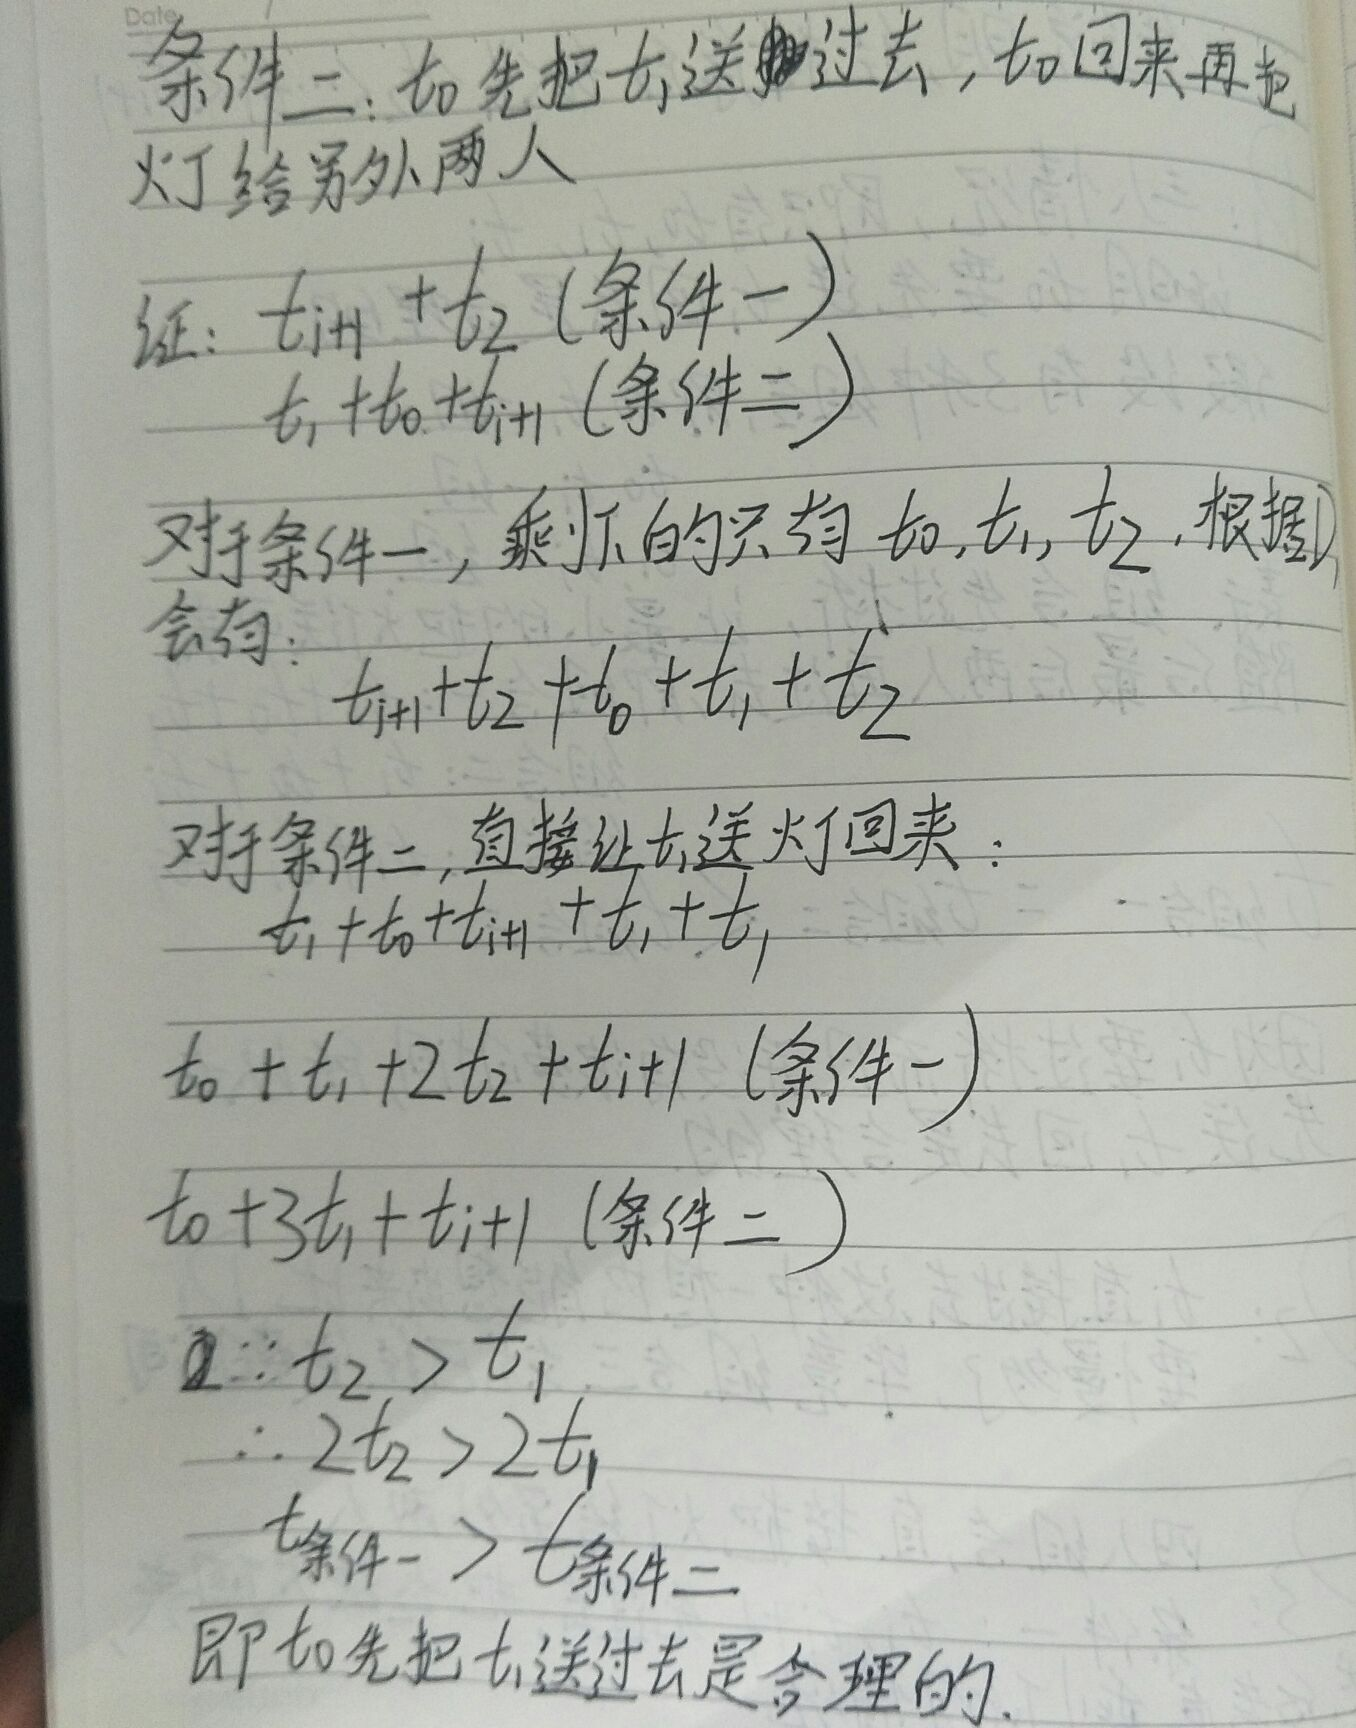 Date
条件二:t₀先把t₁送过去,t₀回来再把
灯给另外两人
证: tᵢ₊₁+t₂(条件一)
t₁+t₀+tᵢ₊₁(条件二)
对于条件一,剩下的只有t₀,t₁,t₂,根据1)
会有:
tᵢ₊₁+t₂+t₀+t₁+t₂
对于条件二,直接让t₁送灯回来:
t₁+t₀+tᵢ₊₁+t₁+t₁
t₀+t₁+2t₂+tᵢ+1(条件一)
t₀+3t₁+tᵢ+1(条件二)
∵t₂>t₁
∴2t₂>2t₁
t条件一>t条件二
即t₀先把t₁送过去是合理的.